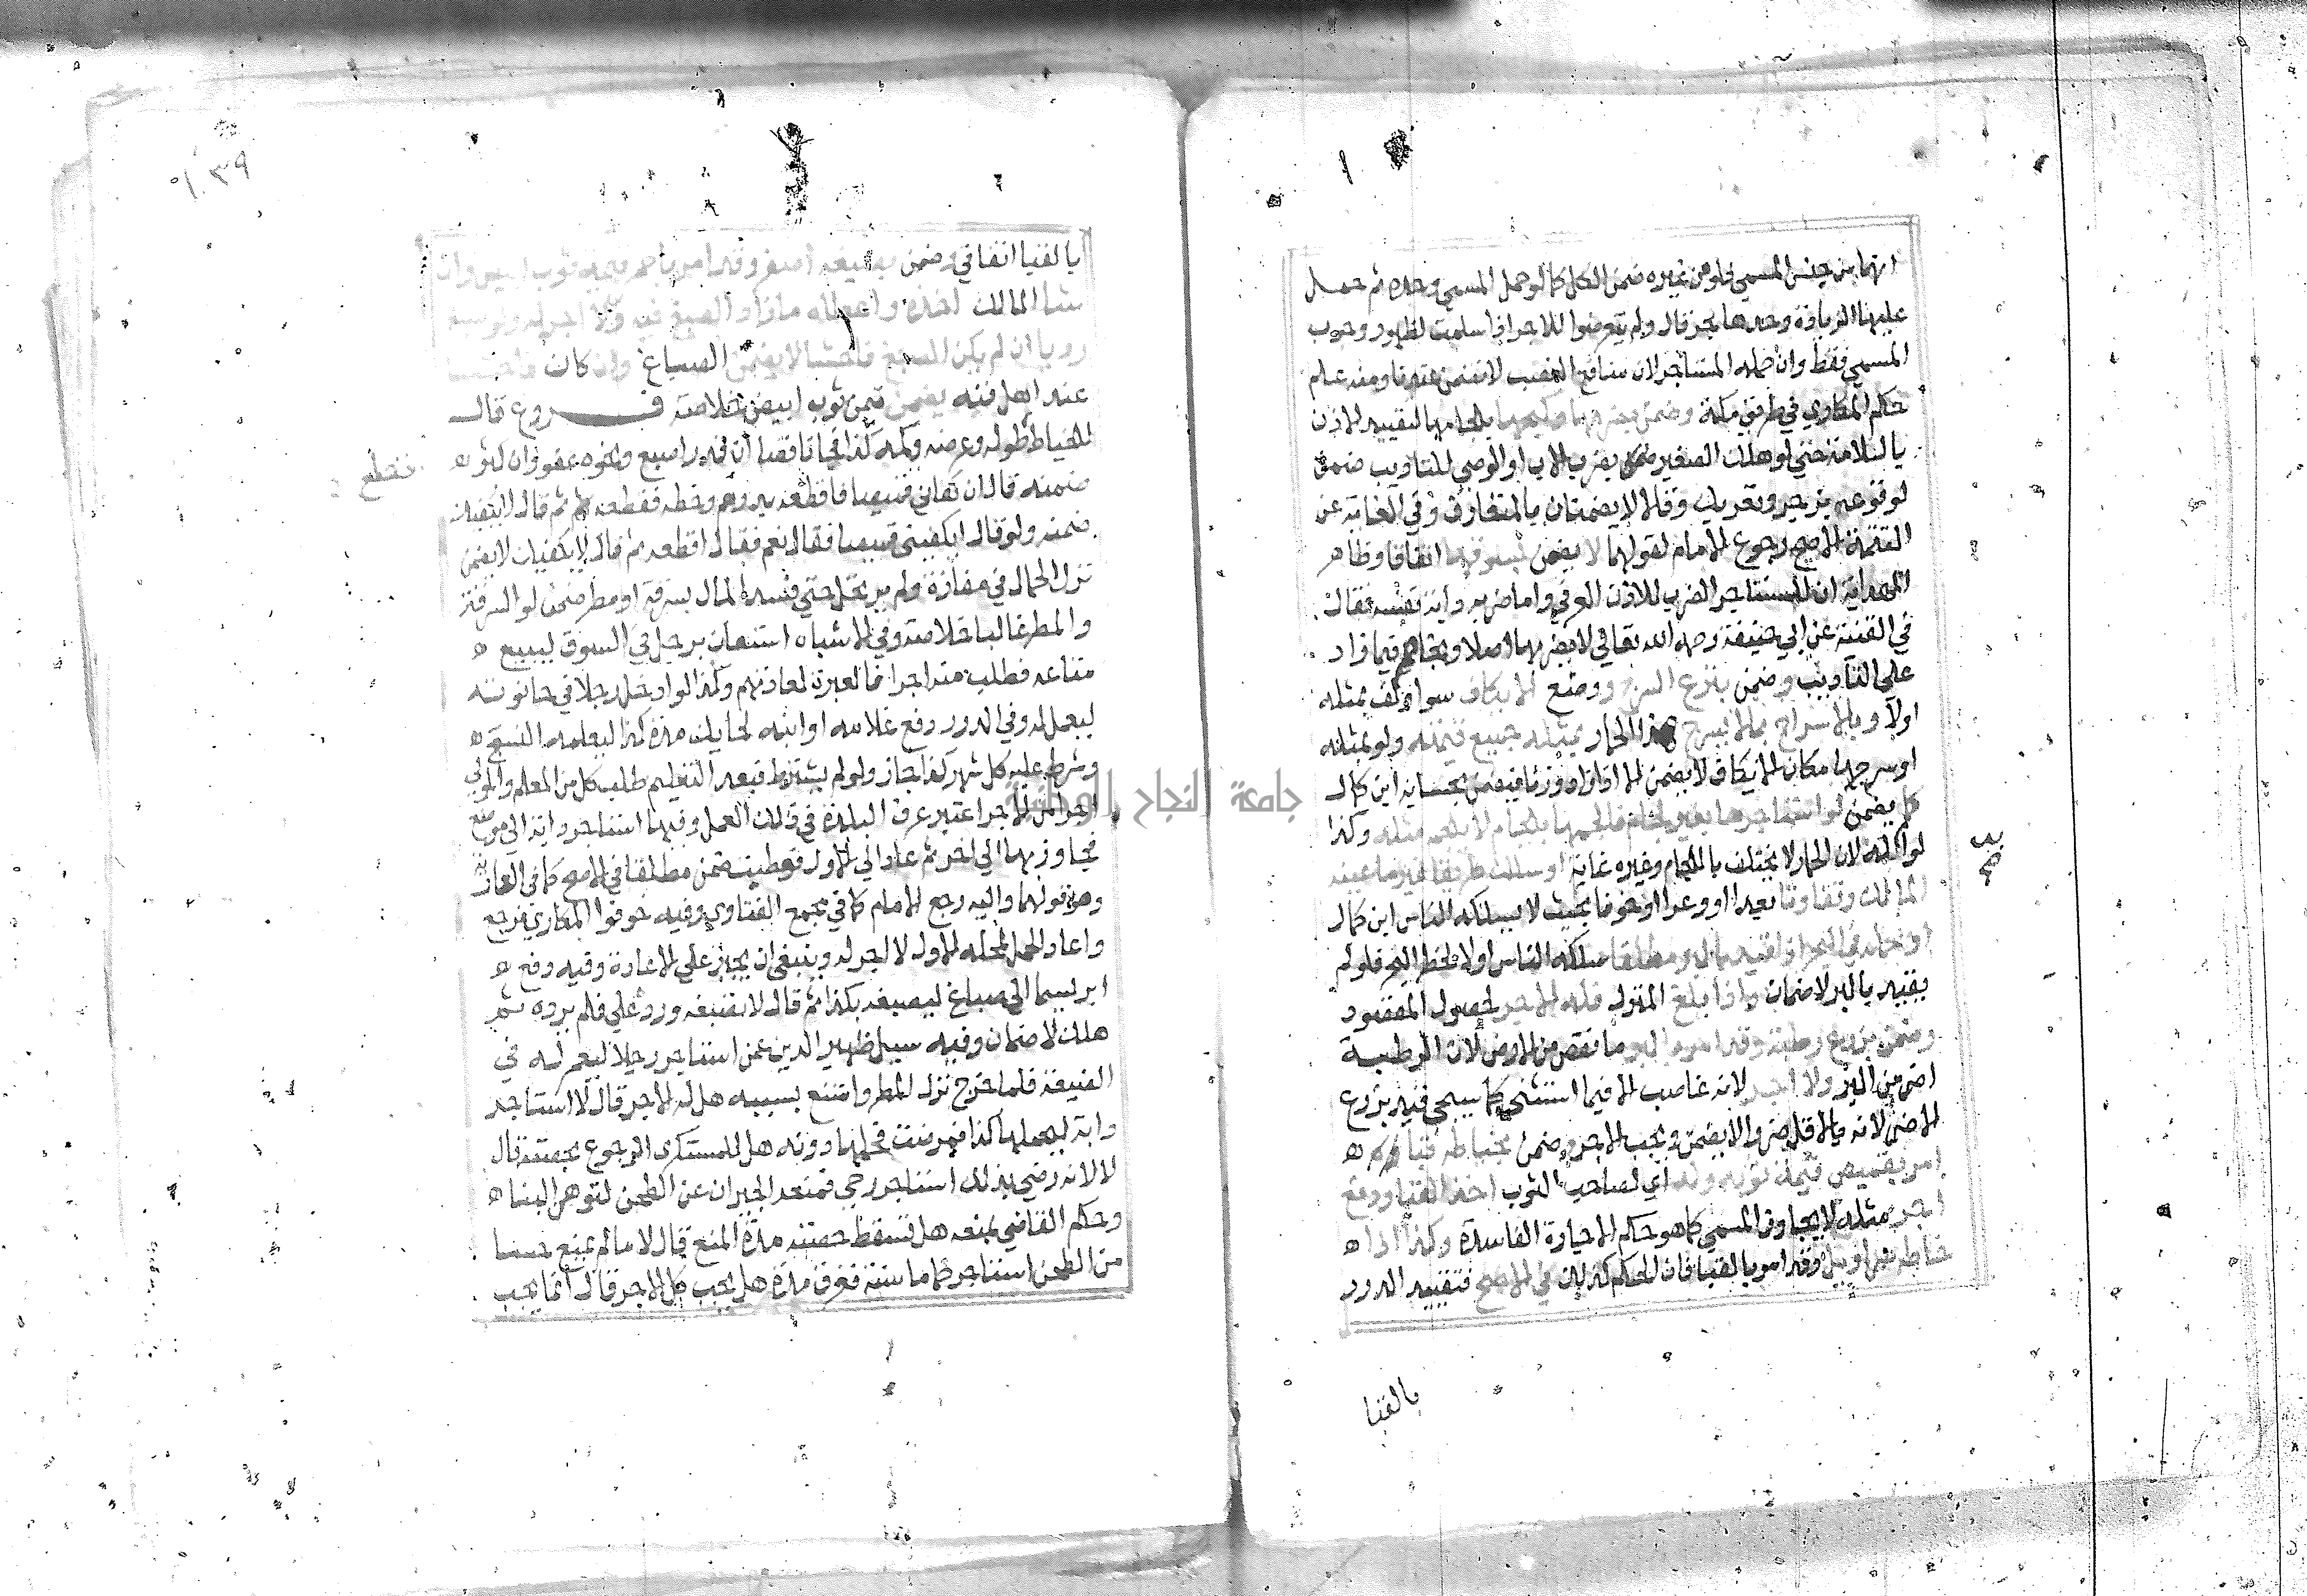 انها من جنس المسمي فلو من غيره ضمن الكل كما لو حمل المسمي وحده ثم حمل
عليها الزيادة وحدها بحر قال ولم يتعرضوا للاجر اذا سلمت لظهور وجوب
المسمي فقط وان حمله المستاجر لان منافع الغصب لا تضمن عندنا ومنه علم
حكم المكاري في طريق مكة وضمن بضربها وكبحها بلجامها لتقييد الاذن
بالسلامة حتي لو هلك الصغير بضرب الاب او الوصي للتاديب ضمن
لوقوعه بزجر وتعريك وقالا لا يضمنان بالمتعارف وفي الغاية عن
التتمة الاصح رجوع الامام لقولهما لا يضمن بسوقها اتفاقا وظاهر
الهداية ان للمستاجر الضرب للاذن العرفي واما ضربه دابة نفسه فقال
في القنية عن ابي حنيفة رحمه الله تعالي لا يضربها اصلا ويخاصم فيما زاد
علي التاديب وضمن بنزع السرج ووضع الايكاف سواء وكف بمثله
اولا وبالاسراج بما لا يسرج هذا الحمار بمثله جميع قيمته ولو بمثله
او سرجها مكان الايكاف لا يضمن الا اذا زاد وزنا فيضمن بحسابه ابن كمال
كما يضمن لو استاجرها بغير لجام فالجمها بلجام لا يلجم مثله وكذا
لو ابدله لان الحمار لا يختلف باللجام وغيره غاية او سلك طريقا غير ما عينه
المالك وتفاوتا بعدا او وعرا او خوفا بحيث لا يسلكه الناس ابن كمال
او حمله في البحر اذا قيد بالبر مطلقا سلكه الناس اولا لخطر البحر فلو لم
يقيد بالبر لا ضمان واذا بلغ المنزل فله الاجر لحصول المقصود
وضمن بزرع رطبة وقد امر بالبر ما نقص من الارض لان الرطبة
اضر من البر ولا اجر لانه غاصب الا فيما استثني كما سيجي قيد بزرع
الاضر لانه بالاقل ضررا لا يضمن ويجب الاجر وضمن بخياطة قباء
امر بقميص قيمة ثوبه وله اي لصاحب الثوب اخذ القبا ودفع
اجر مثله لا يجاوز المسمي كما هو حكم الاجارة الفاسدة وكذا اذا
خاطه سراويل وقد امر بالقبا فان الحكم كذلك في الاصح فتقييد الدرر
بالقبا
بالقبا اتفاقي وضمن بصبغه اصفر وقد امر باحمر قيمة ثوب ابيض وان
شا المالك اخذه واعطاه ما زاد الصبغ فيه ولا اجر له ولو صبغ
رديا ان لم يكن الصبغ فاحشا لا يضمن الصباغ وان كان فاحشا
عند اهل فنه يضمن قيمة ثوب ابيض خلاصة فروع قال
للخياط طوله وعرضه وكمه كذا فجا ناقصا ان قدر اصبع ونحوه عفو وان كثر
ضمنه قال ان كفاني قميصا فاقطعه بدرهم وخطه فقطعه ثم قال لا يكفيك
فقطع
ضمنه ولو قال ايكفيني قميصا فقال نعم فقال اقطعه ثم قال لا يكفيك لا يضمن
نزل الحمال في مفازة ولم يرتحل حتي فسد المال بسرقة او مطر ضمن لو السرقة
والمطر غالبا خلاصة وفي الاشباه استعان برجل في السوق ليبيع
متاعه فطلب منه اجرا فالعبرة لعادتهم وكذا لو ادخل رجلا في حانوته
ليعمل له وفي الدرر دفع غلامه او ابنه لحايك مدة كذا ليعلمه النسج
وشرط عليه كل شهر كذا جاز ولو لم يشترط فبعد التعليم طلب كل من المعلم والمولي
اجرا من الاجر اعتبر عرف البلدة في ذلك العمل وفيها استاجر دابة الي موضع
فجاوز بها الي اخر ثم عاد الي الاول فعطبت ضمن مطلقا في الاصح كما في العارية
وهو قولهما واليه رجع الامام كما في مجمع الفتاوي وفيه خوفوا المكاري فرجع
واعاد الحمل لمحله الاول لا اجر له وينبغي ان يجبر علي الاعادة وفيه دفع
ابريسما الي صباغ ليصبغه بكذا ثم قال لا تصبغه ورد علي فلم يرده ثم
هلك لا ضمان وفيه سيل ظهير الدين عمن استاجر رجلا ليعمر له في
الضيعة فلما خرج نزل المطر وامتنع بسببه هل له الاجر قال لا استاجر
دابة ليحملها كذا فمرضت فحملها دونه هل للمستكري الرجوع بحصته قال
لا لانه رضي بذلك استاجر رحي فمنعه الجيران عن الطحن لتوهن البناء
وحكم القاضي بمنعه هل تسقط حصته مدة المنع قال لا ما لم يمنع حسا
من الطحن استاجر حماما سنة فغرق مدة هل يجب كل الاجر قال انما يجب
جامعة النجاح الوطنية